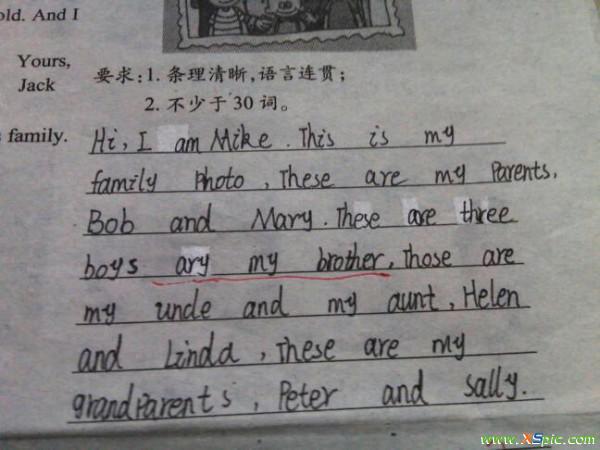 old. And I
Yours,
Jack
要求:1. 条理清晰,语言连贯;
2. 不少于 30 词。
family.
Hi, I am Mike. This is my
family Photo, These are my Parents,
Bob and Mary. These are three
boys ary my brother, Those are
my uncle and my aunt, Helen
and Linda, These are my
grandParents, Peter and sally.
www.XSpic.com